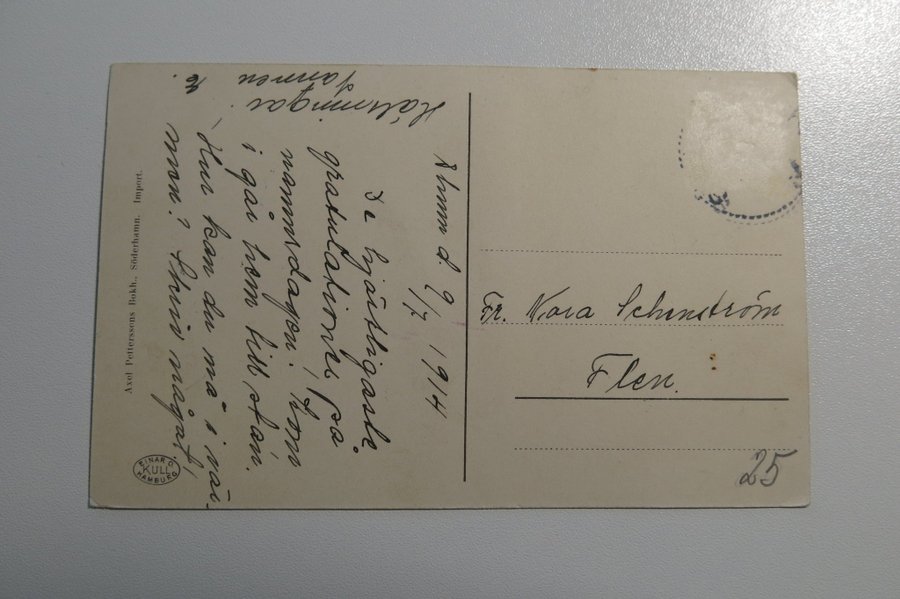 d. 9/7 1914
De hjärtligaste
gratulationer på
namnsdagen! Kom
i går hem till stan.
Hur kan du må i vär-
men? Skriv något!
Hälsningar
Fr. Nora Schenström
Flen.
25
Axel Petterssons Bokh., Söderhamn. Import.
EINAR O.
KULL
HAMBURG